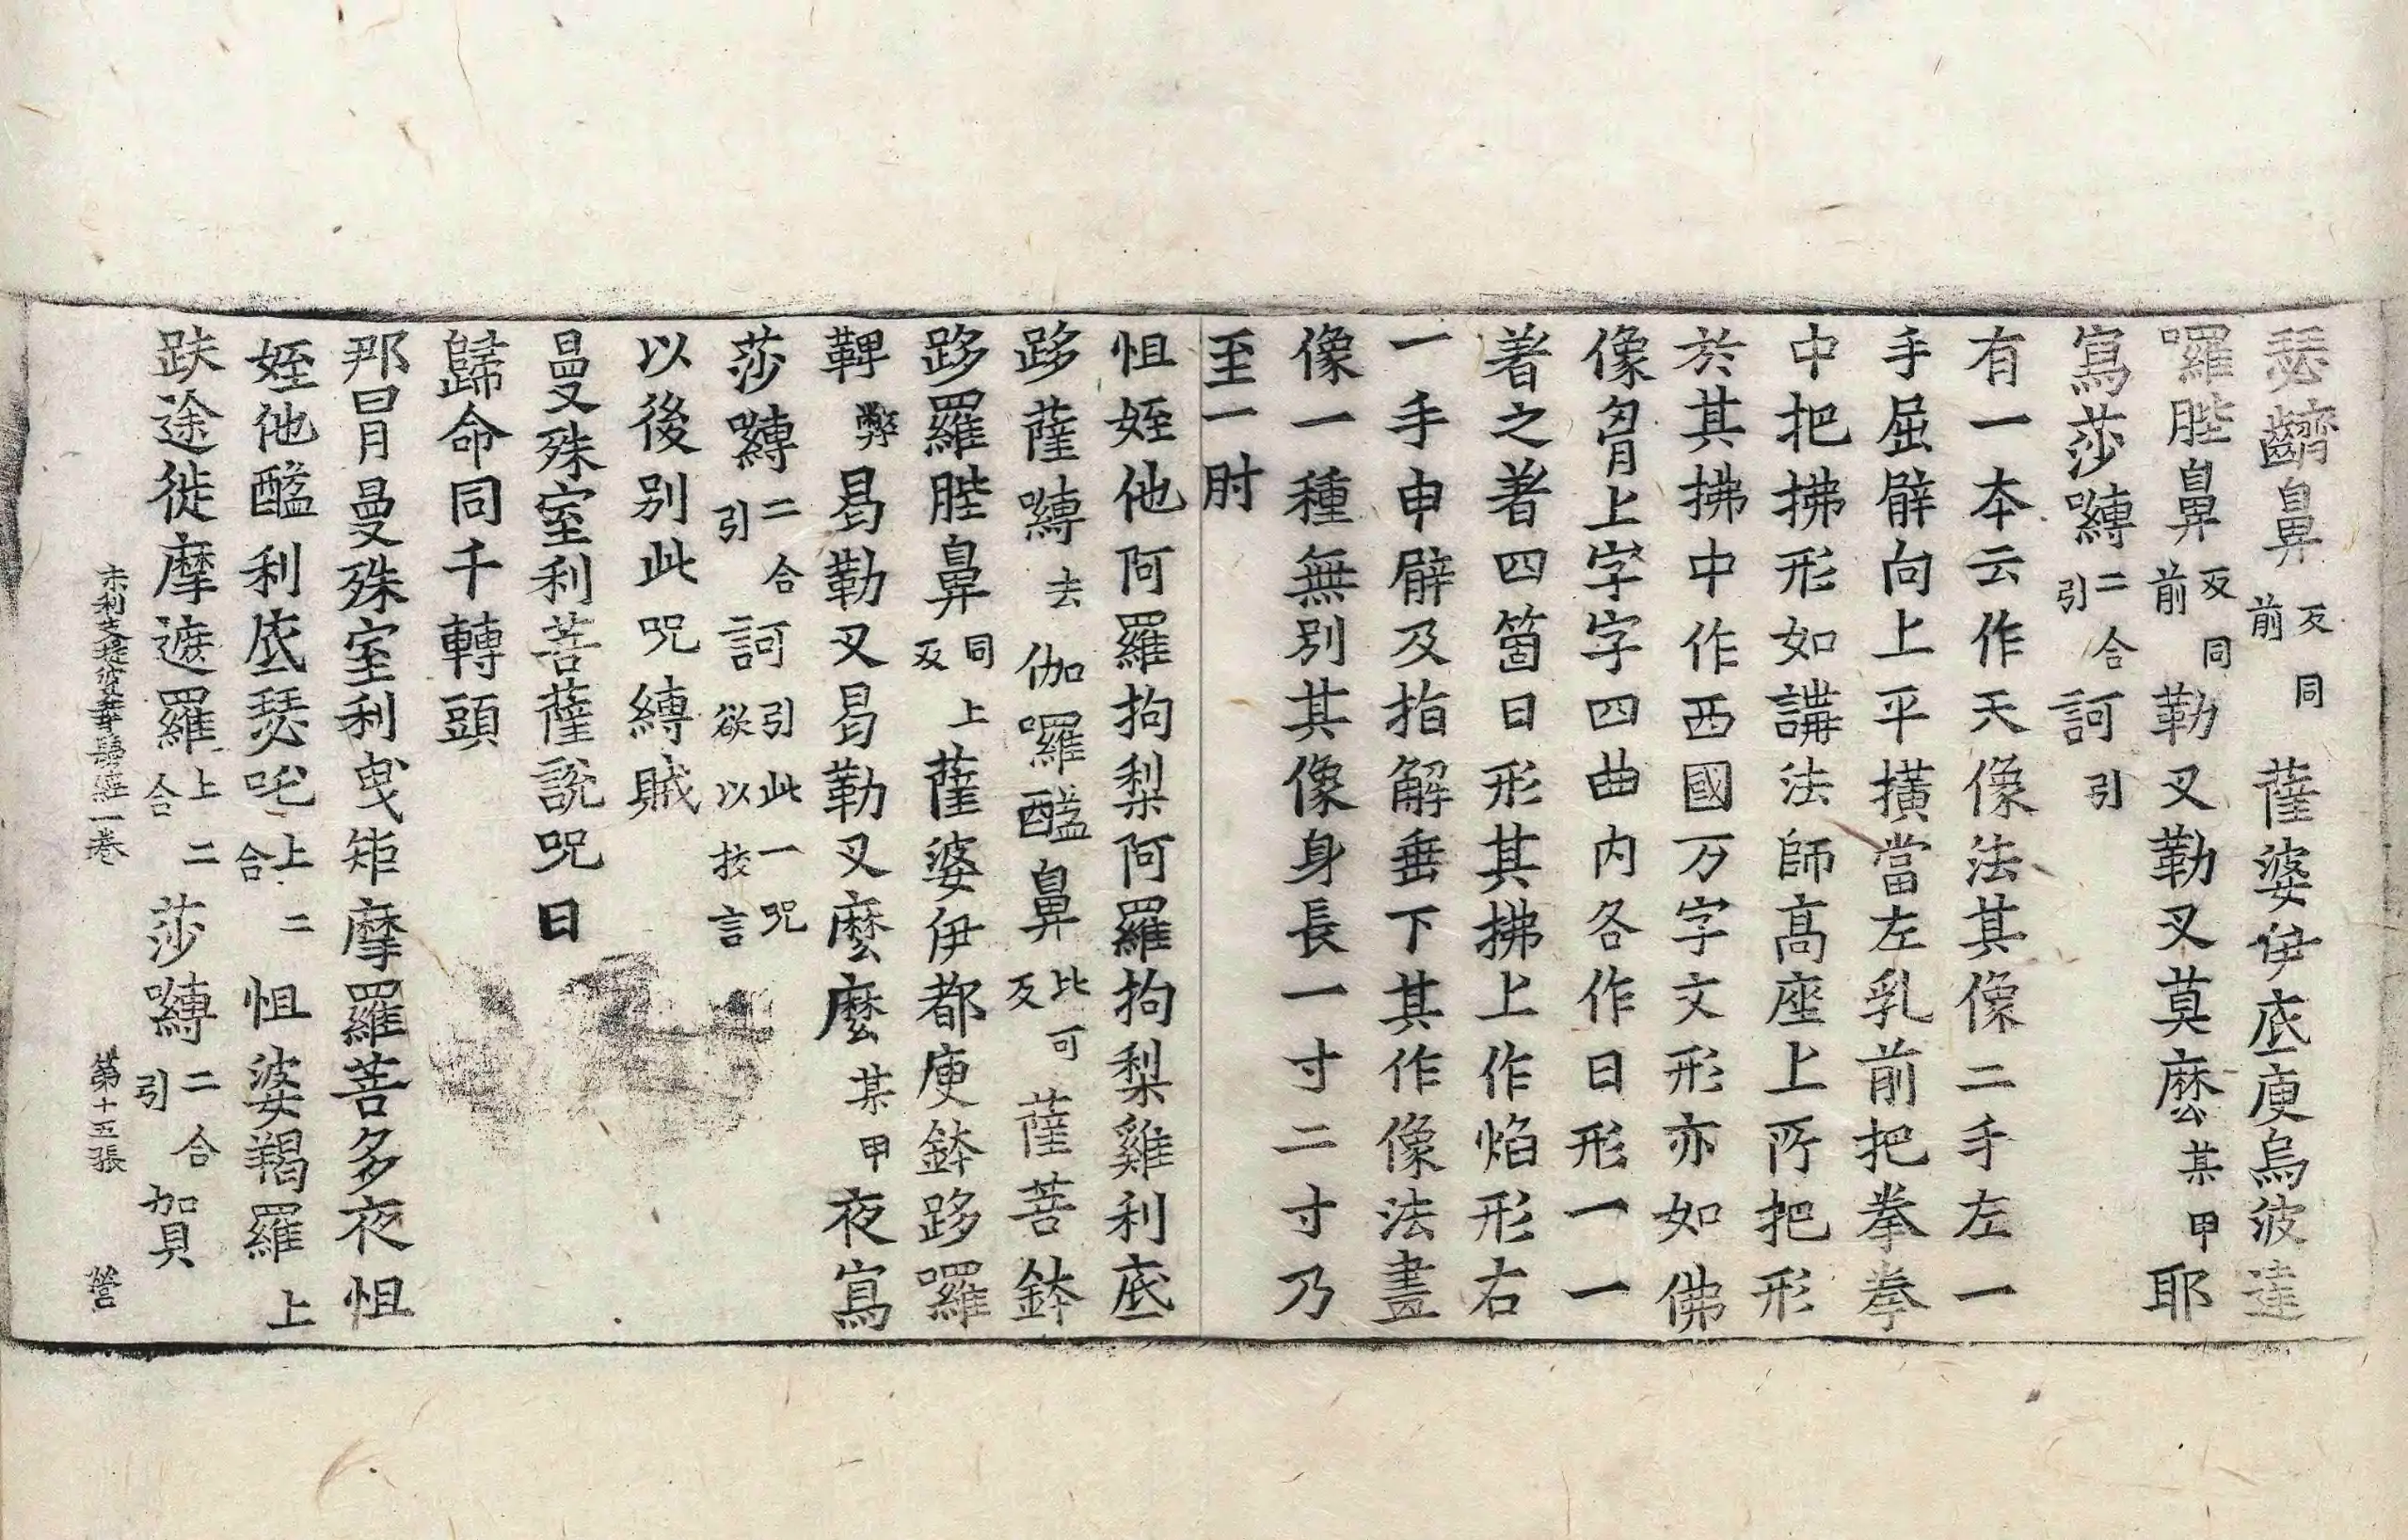 瑟𪗨鼻反同前薩婆伊底庾烏波達
囉胜鼻反同前勒叉勒叉莫麽某甲耶
寫莎嚩二合引訶引
有一本云作天像法其像二手左一
手屈臂向上平橫當左乳前把拳拳
中把拂形如講法師高座上所把形
於其拂中作西國万字文形亦如佛
像胷上字字四曲內各作日形一一
著之著四箇日形其拂上作焰形右
一手申臂及指解垂下其作像法畫
像一種無別其像身長一寸二寸乃
至一肘
怛姪他阿羅拘梨阿羅拘梨雞利底
跢薩嚩去伽囉醯鼻比可反薩菩鉢
跢羅胜鼻同上反薩婆伊都庾鉢跢囉
鞞弊曷勒叉曷勒叉麽麽某甲夜寫
莎嚩二合引訶引此一呪欲以技言
以後別此呪縛賊
曼殊室利菩薩說呪曰
歸命同千轉頭
那曼殊室利曳矩摩羅菩多夜怛
姪他醯利底瑟吒上二合怛婆羯羅上
趺途徙摩遮羅上二合莎嚩二合引賀
末利支提婆華鬘經一卷 第十五張 營